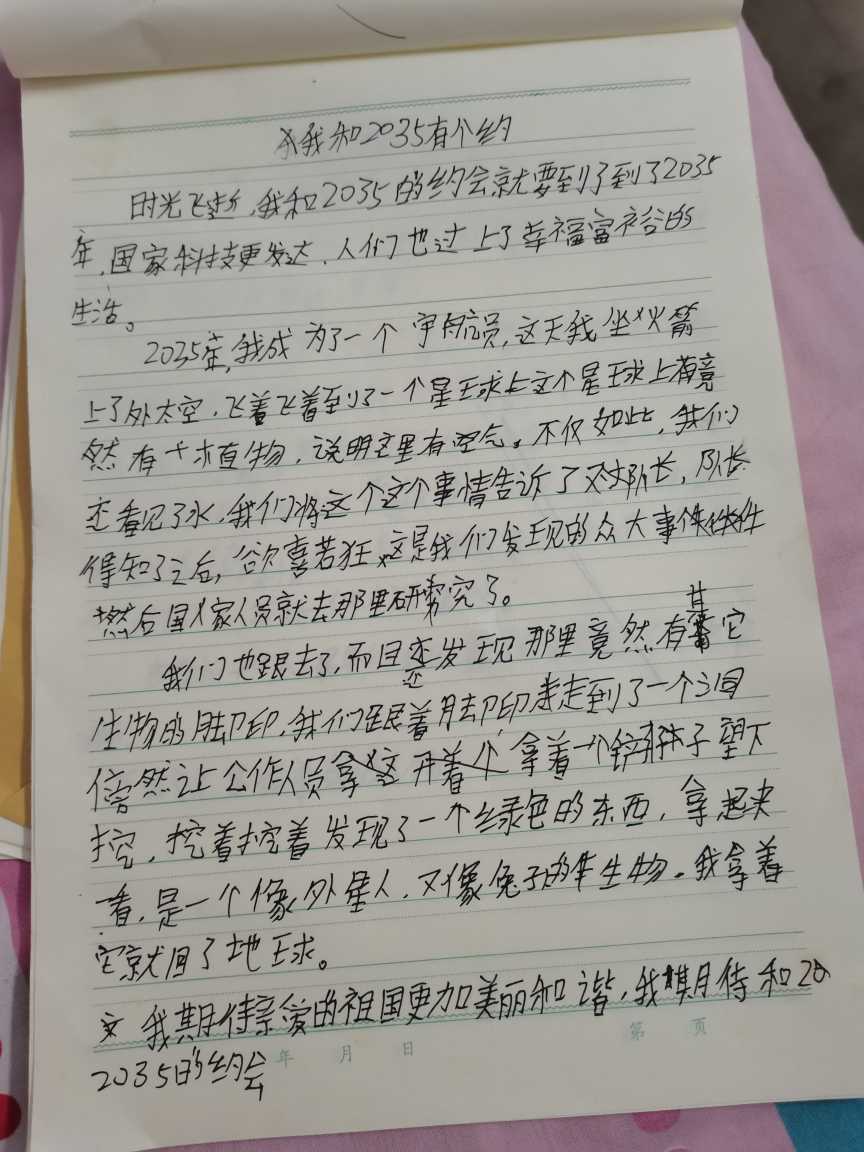 我和2035有个约
时光飞逝,我和2035的约会就要到了到了2035
年,国家科技更发达,人们也过上了幸福富裕的
生活。
2035年,我成为了一个宇航员,这天我坐火箭
上了外太空,飞着飞着到了一个星球上这个星球上竟
然有植物,说明这里有空气。不仅如此,我们
还看见了水,我们将这个这个事情告诉了队长,队长
得知了之后,欲喜若狂,这是我们发现的众大事件
然后国家人员就去那里研究了。
我们也跟去了,而且还发现那里竟然有其它
生物的脚印,我们跟着脚印走到了一个洞
傍然让工作人员拿着一个铲子望下
挖,挖着挖着发现了一个绿色的东西,拿起来
看,是一个像外星人,又像兔子的生物。我拿着
它就回了地球。
我期待亲爱的祖国更加美丽和谐,我期待和
2035的约会
年 月 日
第 页